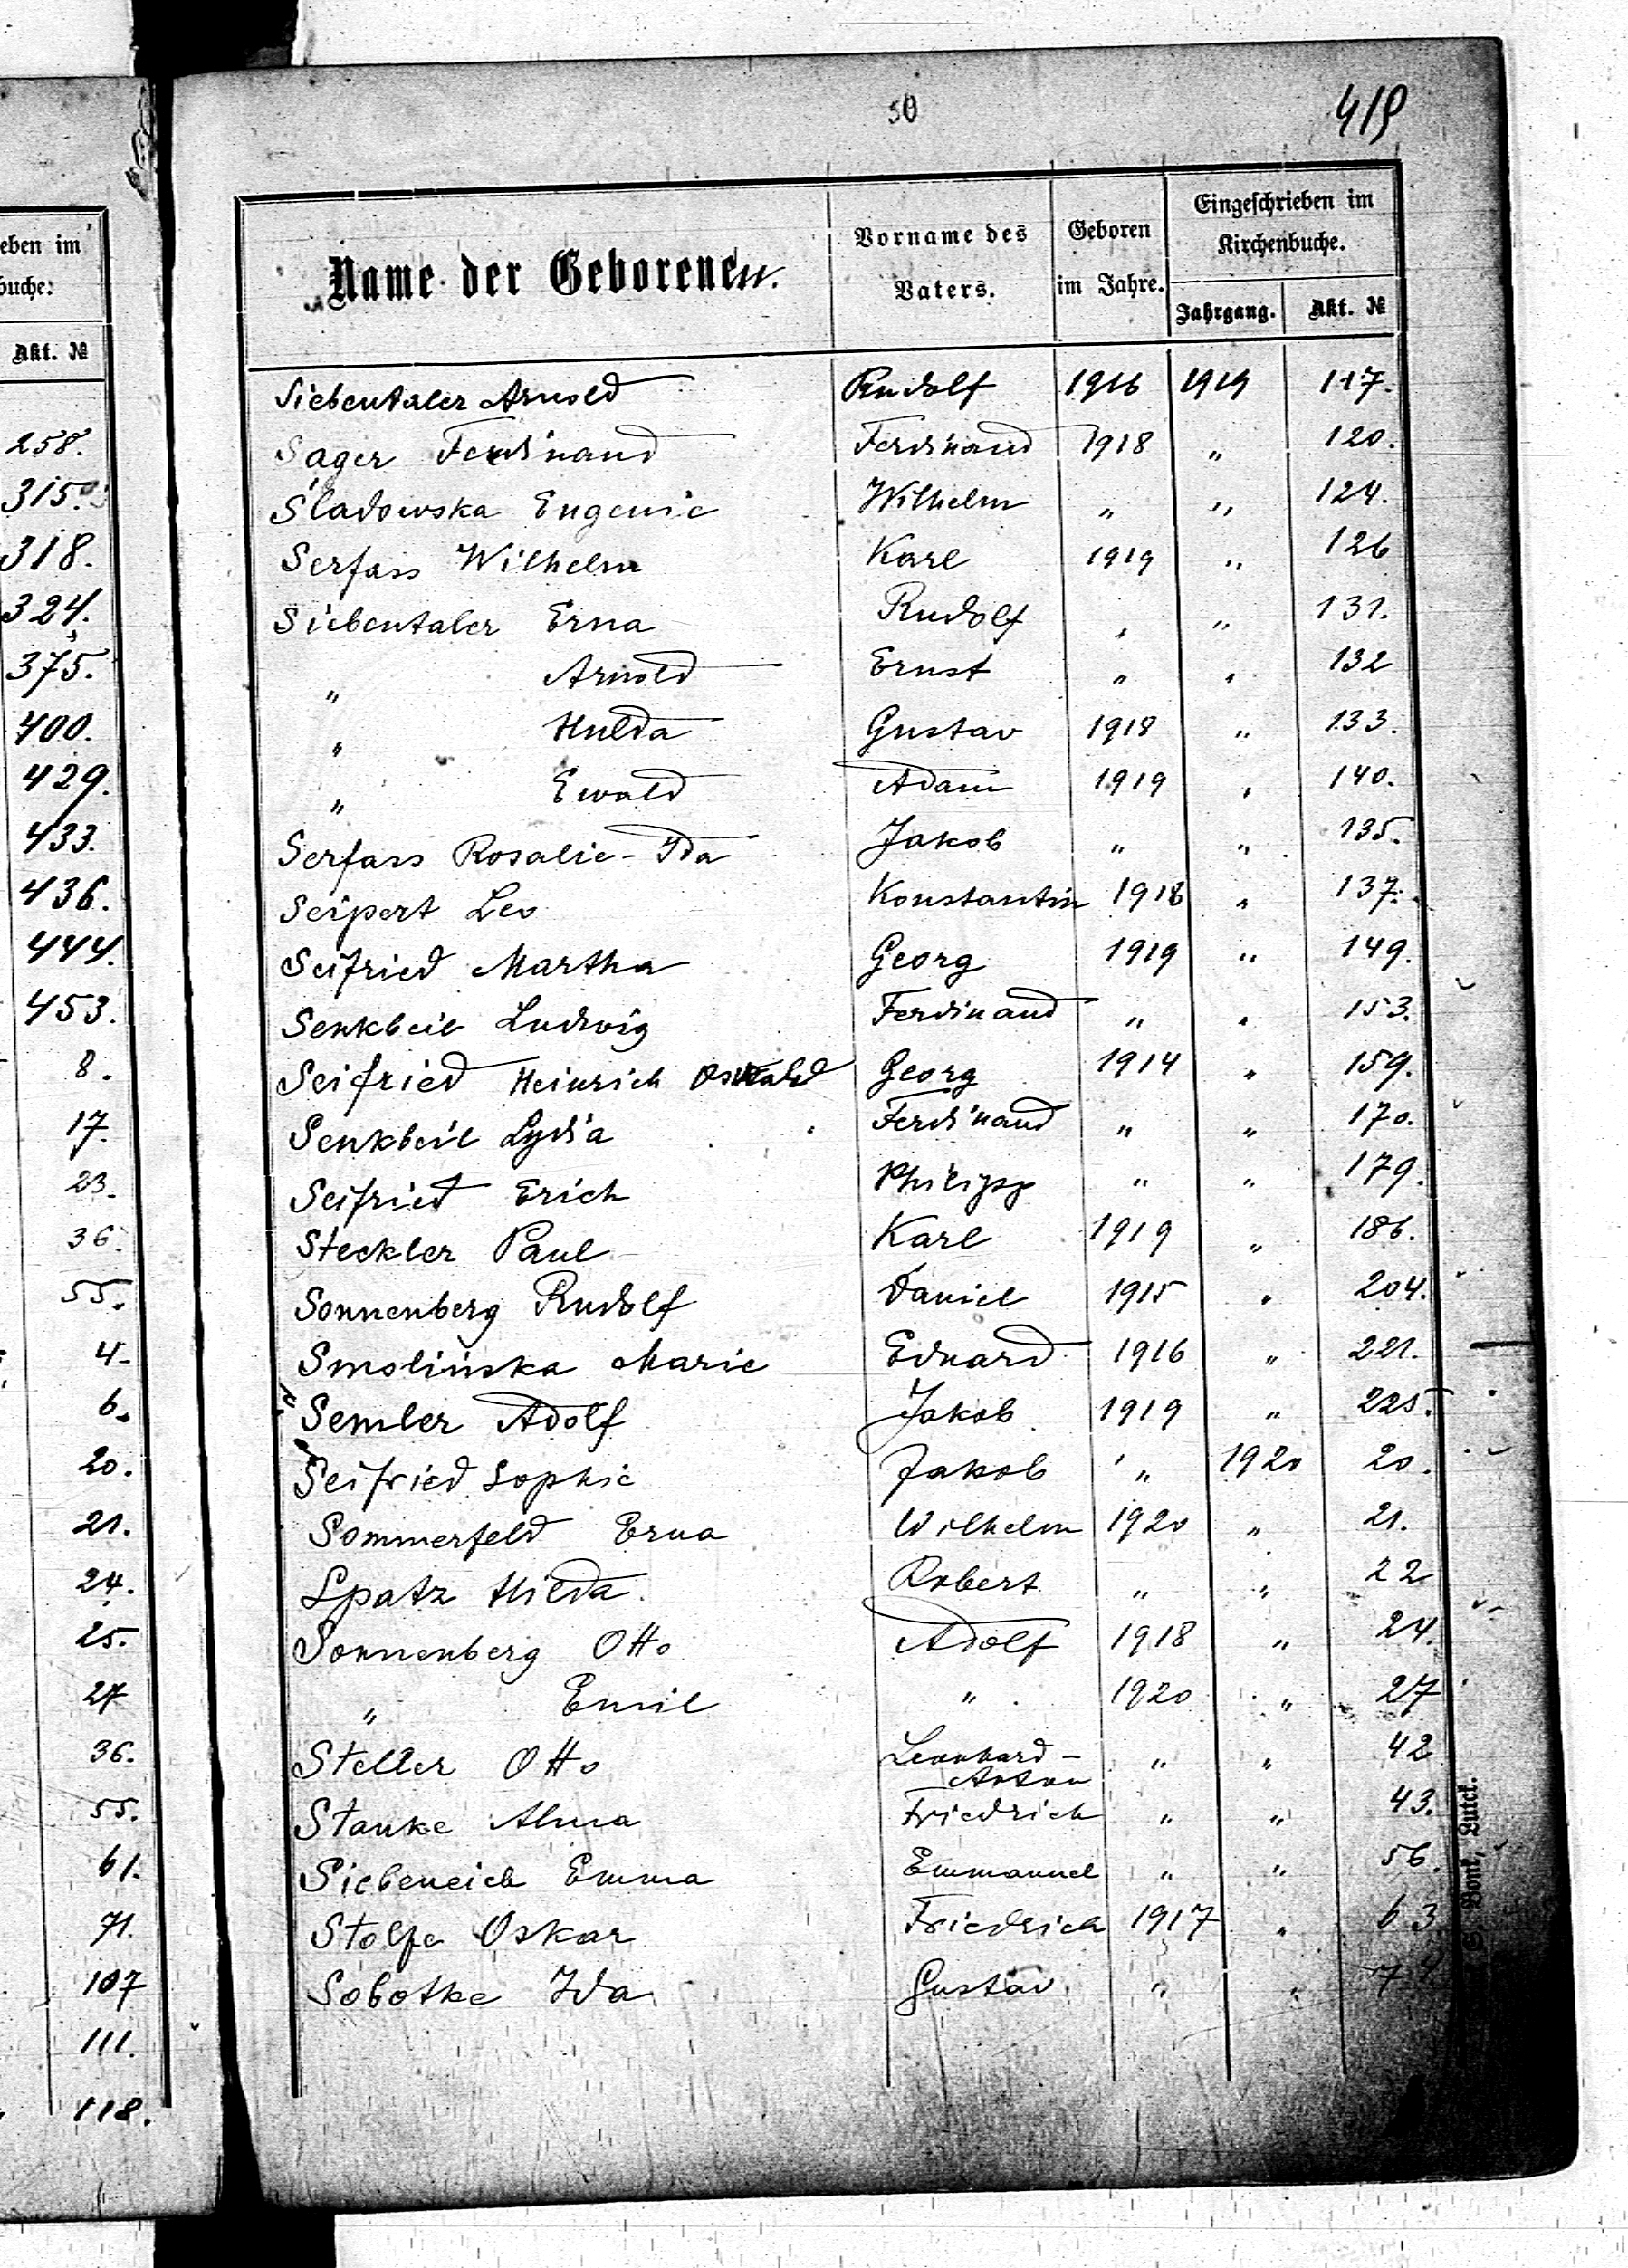 50
419
eben im
buche:
Akt. №
258.
315.
318.
324.
375.
400.
429.
433.
436.
444.
453.
8.
17.
23.
36.
55.
4.
6.
20.
21.
24.
25.
27
36.
55.
61.
71.
107
111.
118.
Name der Geborenen. Vorname des Vaters. Geboren im Jahre. Eingeschrieben im Kirchenbuche.
Jahrgang. Akt. №
Siebentaler Arnold Rudolf 1916 1919 117.
Sager Ferdinand Ferdinand 1918 „ 120.
Sladowska Eugenie Wilhelm „ „ 124.
Serfass Wilhelm Karl 1919 „ 126
Siebentaler Erna Rudolf „ „ 131.
„ Arnold Ernst „ „ 132
„ Hulda Gustav 1918 „ 133.
„ Ewald Adam 1919 „ 140.
Serfass Rosalie-Ida Jakob „ „ 135.
Seipert Leo Konstantin 1918 „ 137.
Seifried Martha Georg 1919 „ 149.
Senkbeil Ludwig Ferdinand „ „ 153.
Seifried Heinrich Oswald Georg 1914 „ 159.
Senkbeil Lydia Ferdinand „ „ 170.
Seifried Erich Philipp „ „ 179.
Steckler Paul Karl 1919 „ 186.
Sonnenberg Rudolf Daniel 1915 „ 204.
Smolińska Marie Eduard 1916 „ 221.
Semler Adolf Jakob 1919 „ 225.
Seifried Sophie Jakob „ 1920 20.
Sommerfeld Erna Wilhelm 1920 „ 21.
Spatz Hilda. Robert „ „ 22
Sonnenberg Otto Adolf 1918 „ 24.
„ Emil „ 1920 „ 27
Steller Otto Leonhard- „ „ 42
Anton
Stanke Alma Friedrich „ „ 43.
Siebeneich Emma Emmanuel „ „ 56.
Stolpe Oskar Friedrich 1917 „ 63
Sobotke Ida Gustav „ „